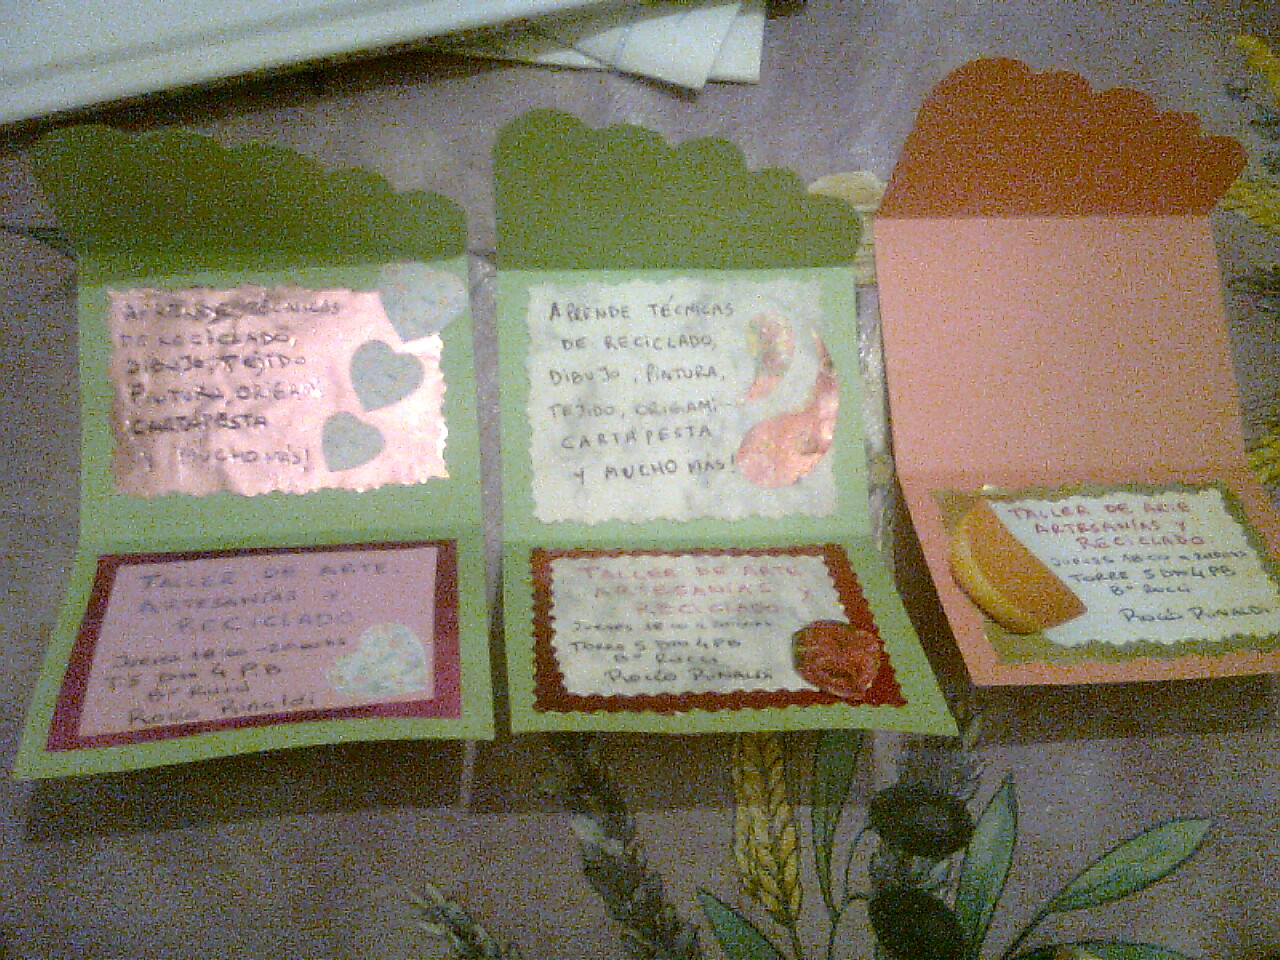 APRENDE TÉCNICAS
DE RECICLADO,
DIBUJO, TEJIDO
PINTURA, ORIGAMI
CARTAPESTA
Y MUCHO MÁS!
TALLER DE ARTE
ARTESANÍAS Y
RECICLADO
JUEVES 18:00
T5 Dto 4 PB
Bº
Rocío Rinaldi
APRENDE TÉCNICAS
DE RECICLADO,
DIBUJO, PINTURA,
TEJIDO, ORIGAMI
CARTAPESTA
Y MUCHO MÁS!
TALLER DE ARTE
ARTESANÍAS Y
RECICLADO
JUEVES 18:00 a
TORRE 5 Dto 4 PB
Bº
ROCÍO RINALDI
TALLER DE ARTE
ARTESANÍAS Y
RECICLADO
JUEVES 18:00 a
TORRE 5 Dto 4 PB
Bº
Rocío Rinaldi